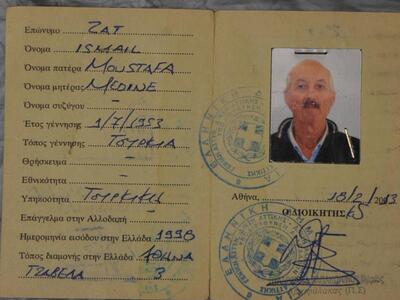 Επώνυμο ZAT
Όνομα ISMAIL
Όνομα πατέρα MOUSTAFA
Όνομα μητέρας MEDINE
Όνομα συζύγου -
Έτος γέννησης 1/7/1953
Τόπος γέννησης ΤΟΥΡΚΙΑ
Θρήσκευμα -
Εθνικότητα -
Υπηκοότητα ΤΟΥΡΚΙΚΗ
Επάγγελμα στην Αλλοδαπή -
Ημερομηνία εισόδου στην Ελλάδα 1998
Τόπος διαμονής στην Ελλάδα ΑΘΗΝΑ
ΤΖΑΒΕΛΑ 3
Αθήνα, 18/2/2013
Ο ΔΙΟΙΚΗΤΗΣ